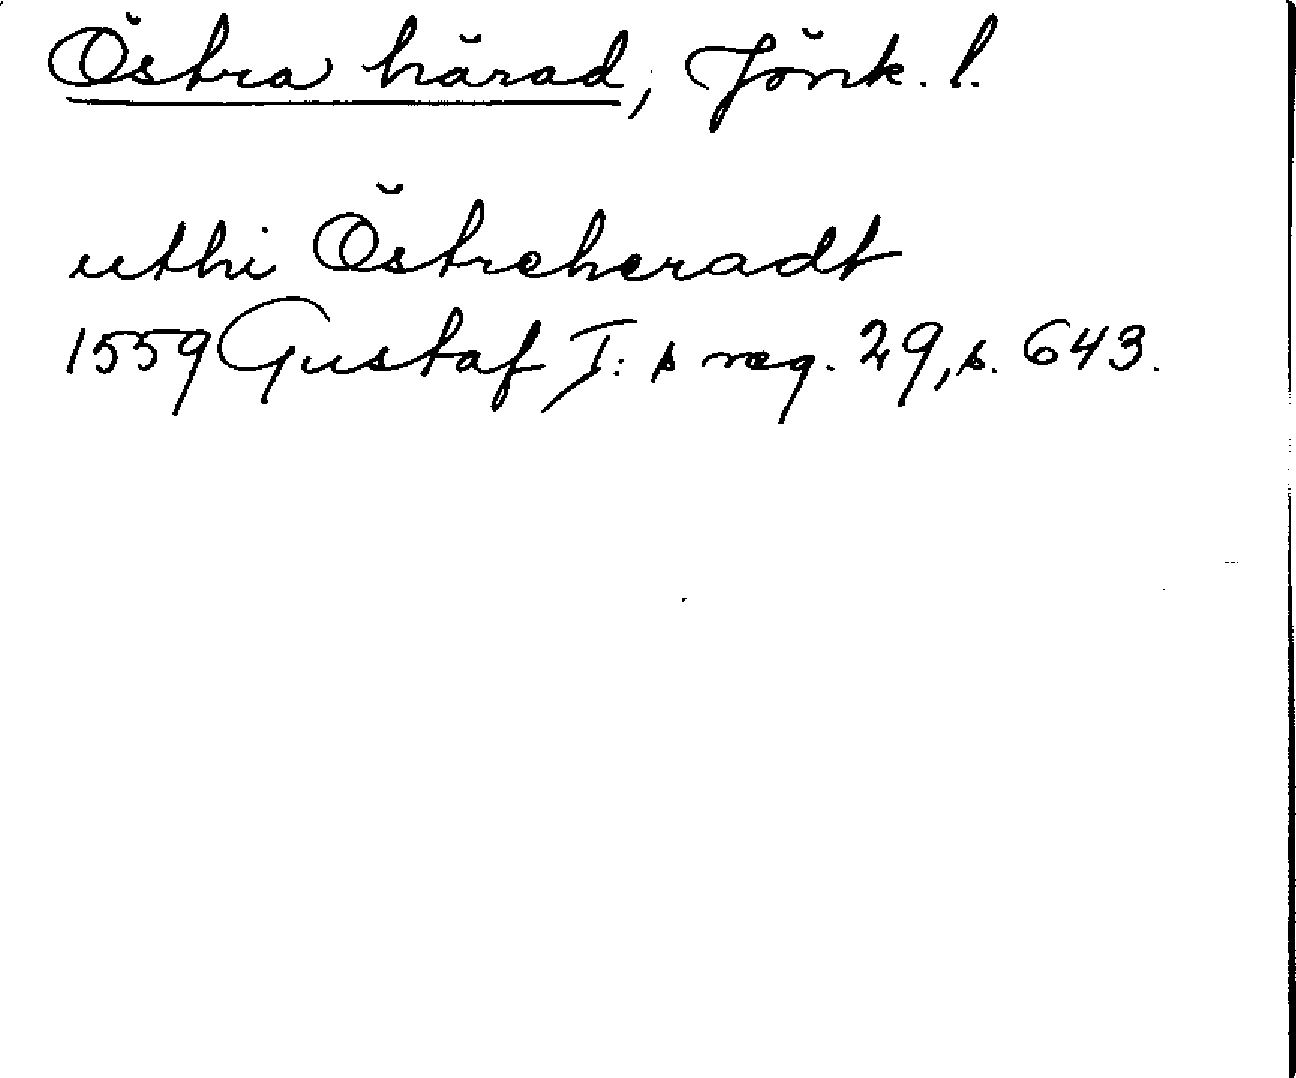 Östra härad, Jönk. l.
uthi Östreheradt
1559 Gustaf I: s reg. 29, s. 643.